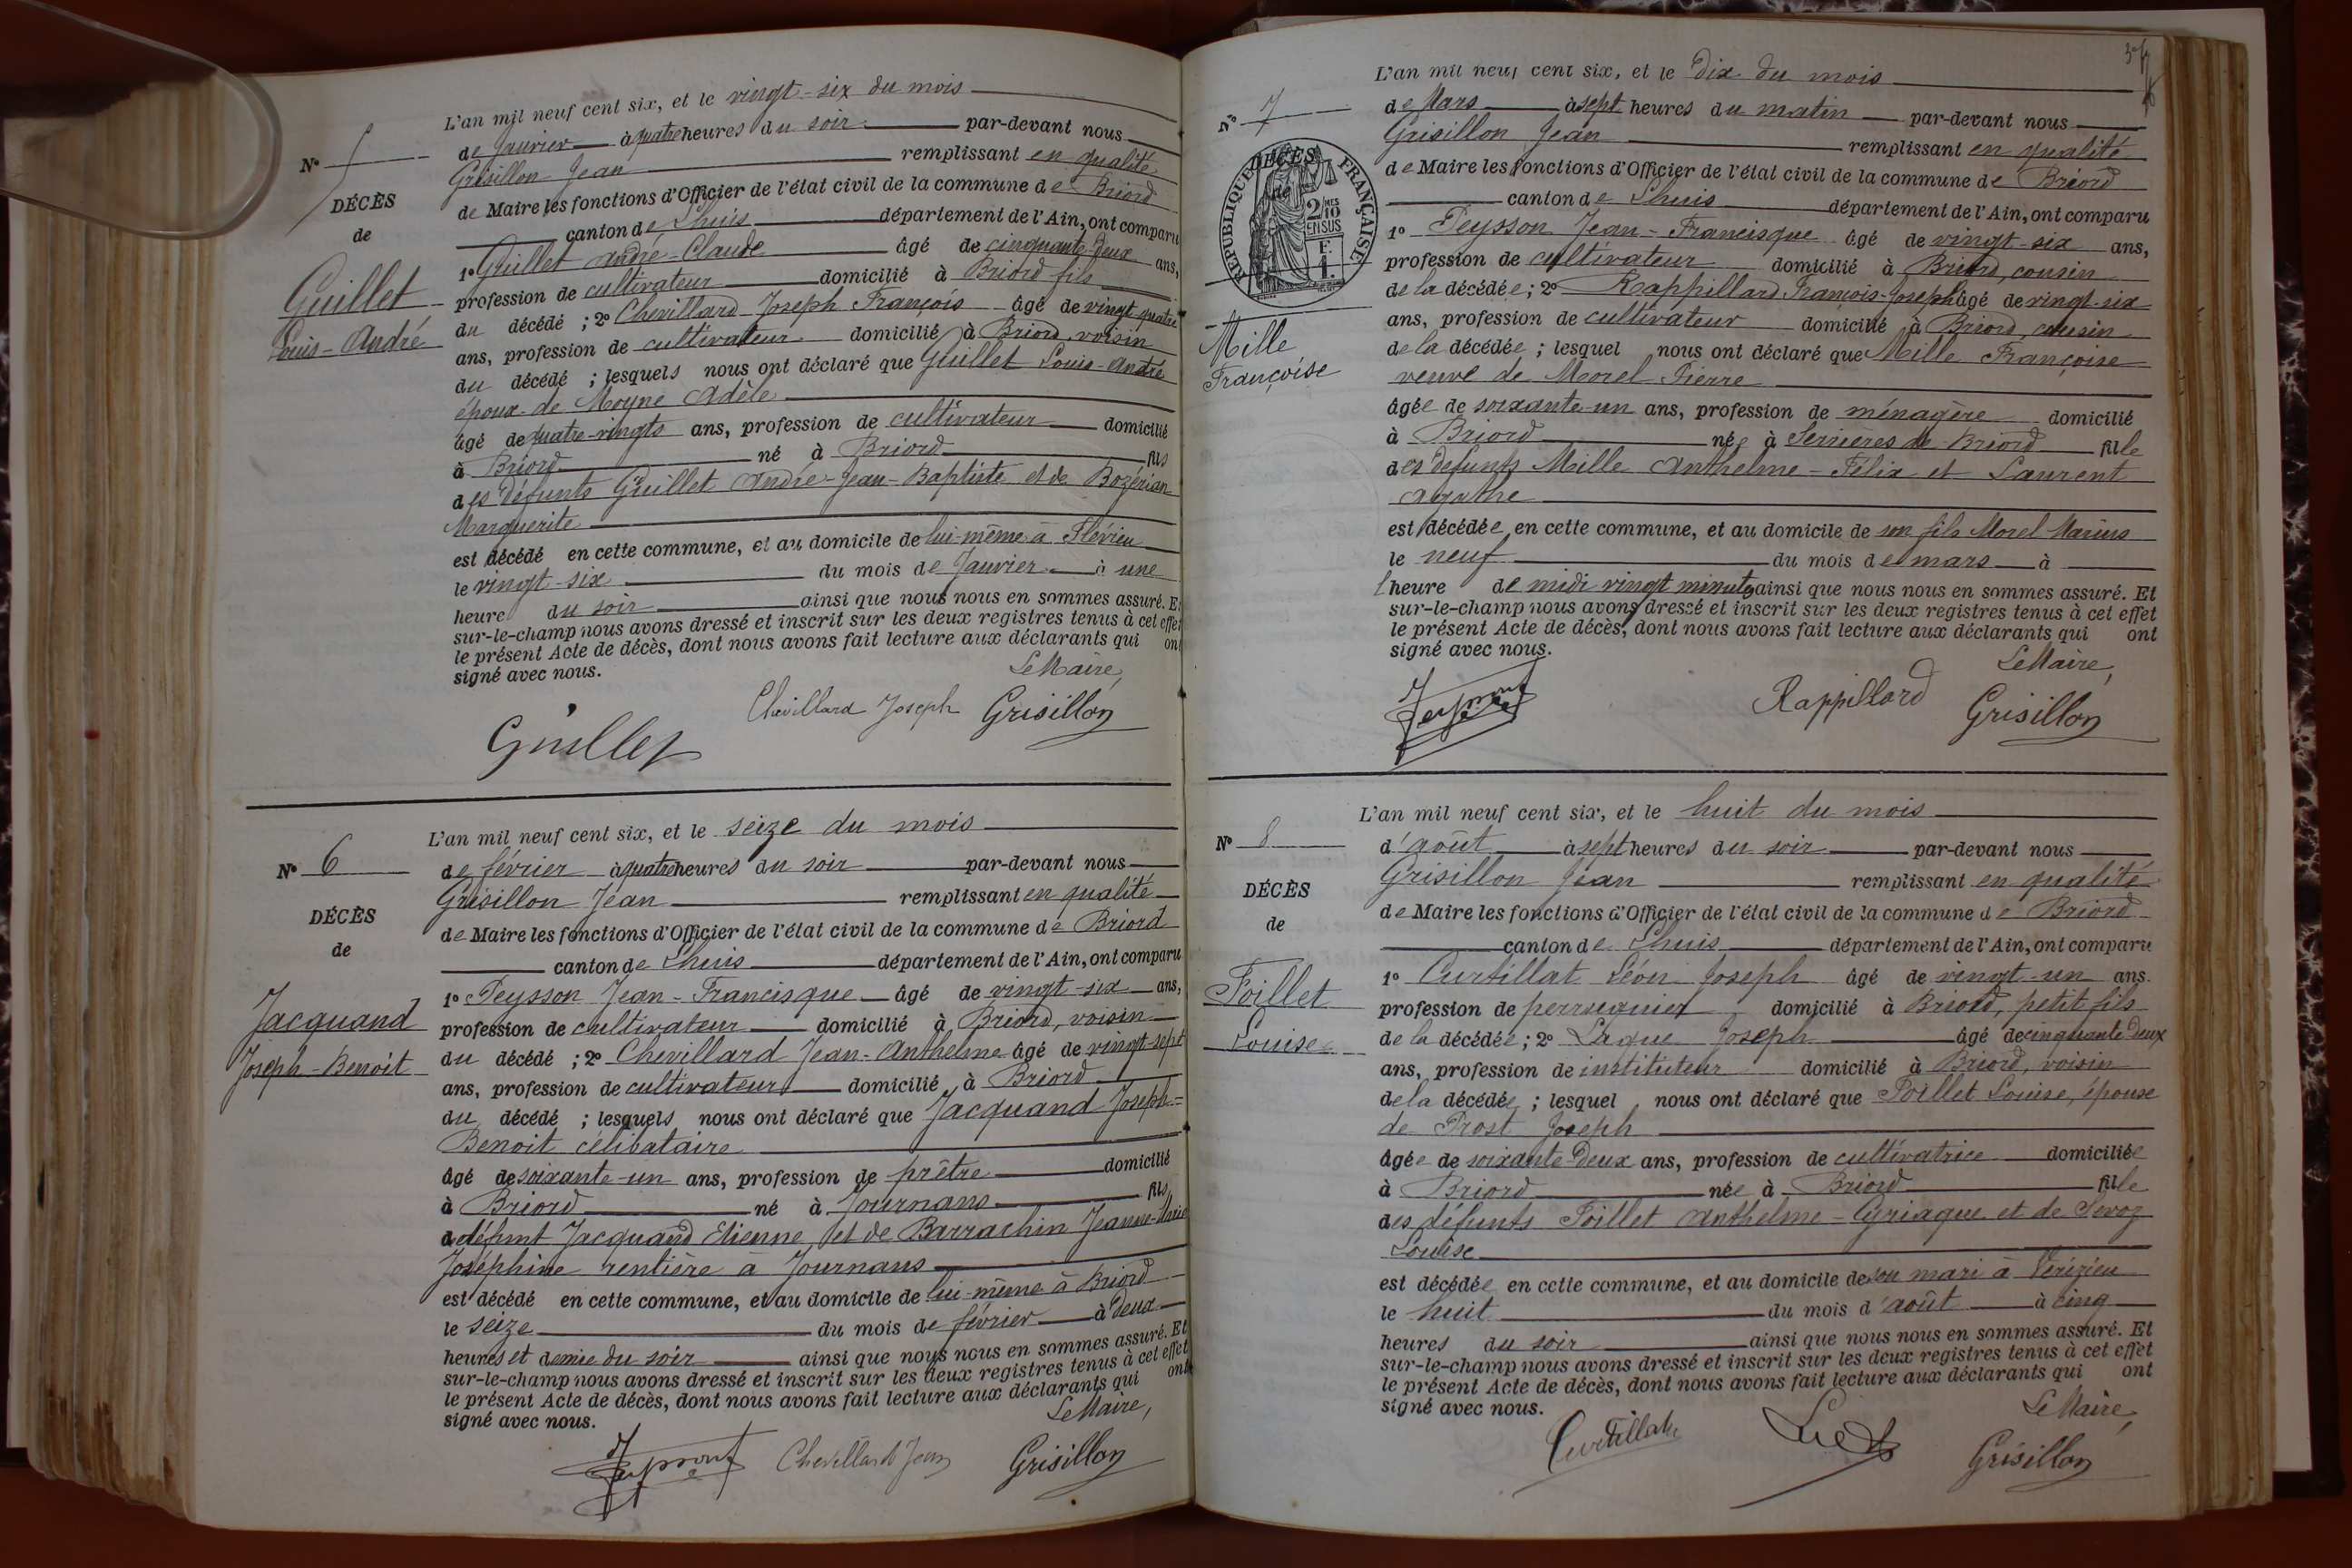 L'an mil neuf cent six, et le vingt-six du mois
de Janvier à quatre heures du soir par-devant nous
Grisillon Jean remplissant en qualité
de Maire les fonctions d'Officier de l'état civil de la commune de Briord
canton de Lhuis département de l'Ain, ont comparu
1° Guillet André-Claude âgé de cinquante deux ans,
profession de cultivateur domicilié à Briord fils
du décédé ; 2° Chevillard Joseph François âgé de vingt quatre
ans, profession de cultivateur domicilié à Briord, voisin
du décédé ; lesquels nous ont déclaré que Guillet Louis-André
époux de Moyne Adèle
âgé de quatre-vingts ans, profession de cultivateur domicilié
à Briord né à Briord fils
des défunts Guillet André-Jean-Baptiste et de Bozérian
Marguerite
est décédé en cette commune, et au domicile de lui-même à Flévieu
le vingt-six du mois de Janvier à une
heure du soir ainsi que nous nous en sommes assuré. Et
sur-le-champ nous avons dressé et inscrit sur les deux registres tenus à cet effet
le présent Acte de décès, dont nous avons fait lecture aux déclarants qui ont
signé avec nous.
Le Maire,
Chevillard Joseph Grisillon
Guillet
N°
DÉCÈS
de
Guillet
Louis-André
L'an mil neuf cent six, et le seize du mois
N° 6
de février à quatre heures du soir par-devant nous
Grisillon Jean remplissant en qualité
DÉCÈS
de Maire les fonctions d'Officier de l'état civil de la commune de Briord
de
canton de Lhuis département de l'Ain, ont comparu
1° Peysson Jean-Francisque âgé de vingt-six ans,
Jacquand
profession de cultivateur domicilié à Briord, voisin
Joseph-Benoit
du décédé ; 2° Chevillard Jean-Anthelme âgé de vingt-sept
ans, profession de cultivateur domicilié à Briord
du décédé ; lesquels nous ont déclaré que Jacquand Joseph-
Benoit célibataire
âgé de soixante-un ans, profession de prêtre domicilié
à Briord né à Journans fils
de défunt Jacquand Etienne et de Barrachin Jeanne-Marie
Joséphine rentière à Journans
est décédé en cette commune, et au domicile de lui-même à Briord
le seize du mois de février à deux
heures et demie du soir ainsi que nous nous en sommes assuré. Et
sur-le-champ nous avons dressé et inscrit sur les deux registres tenus à cet effet
le présent Acte de décès, dont nous avons fait lecture aux déclarants qui ont
signé avec nous.
Le Maire,
Chevillard Jean Grisillon
L'an mil neuf cent six, et le dix du mois
N° 7
de Mars à sept heures du matin par-devant nous
Grisillon Jean remplissant en qualité
de Maire les fonctions d'Officier de l'état civil de la commune de Briord
canton de Lhuis département de l'Ain, ont comparu
1° Peysson Jean-Francisque âgé de vingt-six ans,
profession de cultivateur domicilié à Briord, cousin
de la décédée ; 2° Rappillard François-Joseph âgé de vingt-six
ans, profession de cultivateur domicilié à Briord, cousin
de la décédée ; lesquel nous ont déclaré que Mille Françoise
veuve de Morel Pierre
âgée de soixante-un ans, profession de ménagère domicilié
à Briord née à Serrières de Briord fille
des défunts Mille Anthelme-Félix et Laurent
Agathe
est décédée en cette commune, et au domicile de son fils Morel Marius
le neuf du mois de mars à
l'heure de midi vingt minutes ainsi que nous nous en sommes assuré. Et
sur-le-champ nous avons dressé et inscrit sur les deux registres tenus à cet effet
le présent Acte de décès, dont nous avons fait lecture aux déclarants qui ont
signé avec nous.
Le Maire,
Rappillard Grisillon
DÉCÈS
de
RÉPUBLIQUE FRANÇAISE
2/10 MES
EN SUS
F.
1.
Mille
Françoise
L'an mil neuf cent six, et le huit du mois
N° 8
d'août à sept heures du soir par-devant nous
Grisillon Jean remplissant en qualité
DÉCÈS
de Maire les fonctions d'Officier de l'état civil de la commune de Briord
de
canton de Lhuis département de l'Ain, ont comparu
1° Curtillat Léon Joseph âgé de vingt-un ans.
Poillet
profession de perruquier domicilié à Briord, petit fils
Louise
de la décédée ; 2° Joseph âgé de cinquante deux
ans, profession de instituteur domicilié à Briord, voisin
de la décédée ; lesquel nous ont déclaré que Poillet Louise, épouse
de Prost Joseph
âgée de soixante deux ans, profession de cultivatrice domiciliée
à Briord née à Briord fille
des défunts Poillet Anthelme-Cyriaque et de Sevoz
Louise
est décédée en cette commune, et au domicile de son mari à Vérizieu
le huit du mois d'août à cinq
heures du soir ainsi que nous nous en sommes assuré. Et
sur-le-champ nous avons dressé et inscrit sur les deux registres tenus à cet effet
le présent Acte de décès, dont nous avons fait lecture aux déclarants qui ont
signé avec nous.
Le Maire,
Curtillat Grisillon